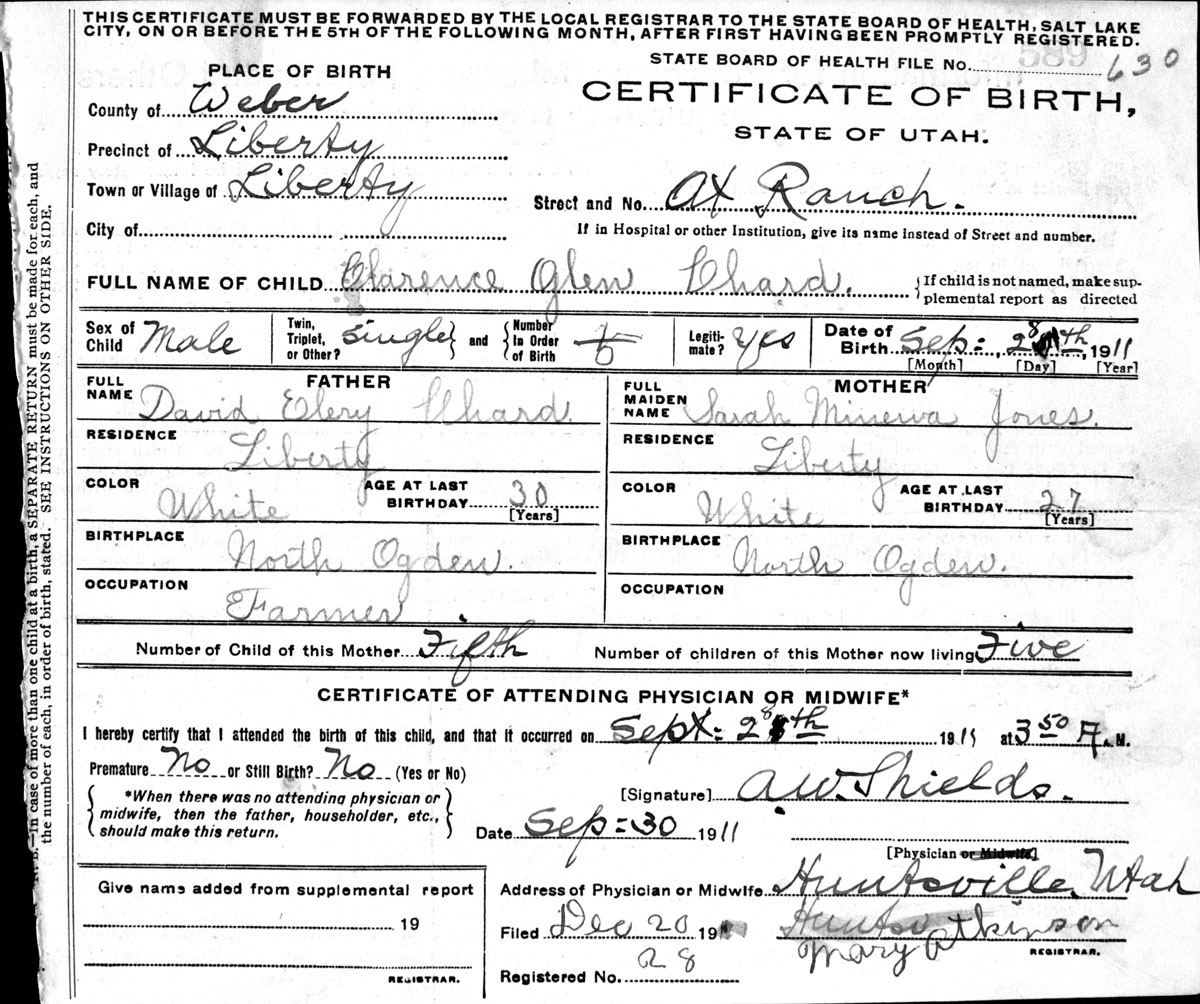 THIS CERTIFICATE MUST BE FORWARDED BY THE LOCAL REGISTRAR TO THE STATE BOARD OF HEALTH, SALT LAKE
CITY, ON OR BEFORE THE 5TH OF THE FOLLOWING MONTH, AFTER FIRST HAVING BEEN PROMPTLY REGISTERED.
STATE BOARD OF HEALTH FILE No. 630
PLACE OF BIRTH
CERTIFICATE OF BIRTH,
STATE OF UTAH.
County of Weber
Precinct of Liberty
Town or Village of Liberty
Street and No. At Ranch.
City of
If in Hospital or other Institution, give its name instead of Street and number.
FULL NAME OF CHILD Clarence Glen Chard. {If child is not named, make sup-
plemental report as directed
Sex of Child Male Twin, Triplet, or Other? single and Number In Order of Birth Legiti-mate? Yes Date of Birth Sep: 28th, 1911
[Month] [Day] [Year]
FATHER MOTHER
FULL NAME David Elery Chard. FULL MAIDEN NAME Sarah Minerva Jones.
RESIDENCE Liberty RESIDENCE Liberty
COLOR White AGE AT LAST BIRTHDAY 30 [Years] COLOR White AGE AT LAST BIRTHDAY 27 [Years]
BIRTHPLACE North Ogden. BIRTHPLACE North Ogden.
OCCUPATION Farmer OCCUPATION
Number of Child of this Mother Fifth Number of children of this Mother now living Five
CERTIFICATE OF ATTENDING PHYSICIAN OR MIDWIFE*
I hereby certify that I attended the birth of this child, and that it occurred on Sept: 28th 1911 at 3 50 A A.M.
Premature No or Still Birth? No (Yes or No)
{*When there was no attending physician or
midwife, then the father, householder, etc.,
should make this return.}
[Signature] A.W. Shields.
Date Sep: 30 1911
[Physician or Midwife]
Give name added from supplemental report
19
REGISTRAR.
Address of Physician or Midwife Huntsville, Utah
Filed Dec 20 191
Mary Atkinson
REGISTRAR.
Registered No. 28
N. B.—In case of more than one child at a birth, a SEPARATE RETURN must be made for each, and
the number of each, in order of birth, stated. SEE INSTRUCTIONS ON OTHER SIDE.